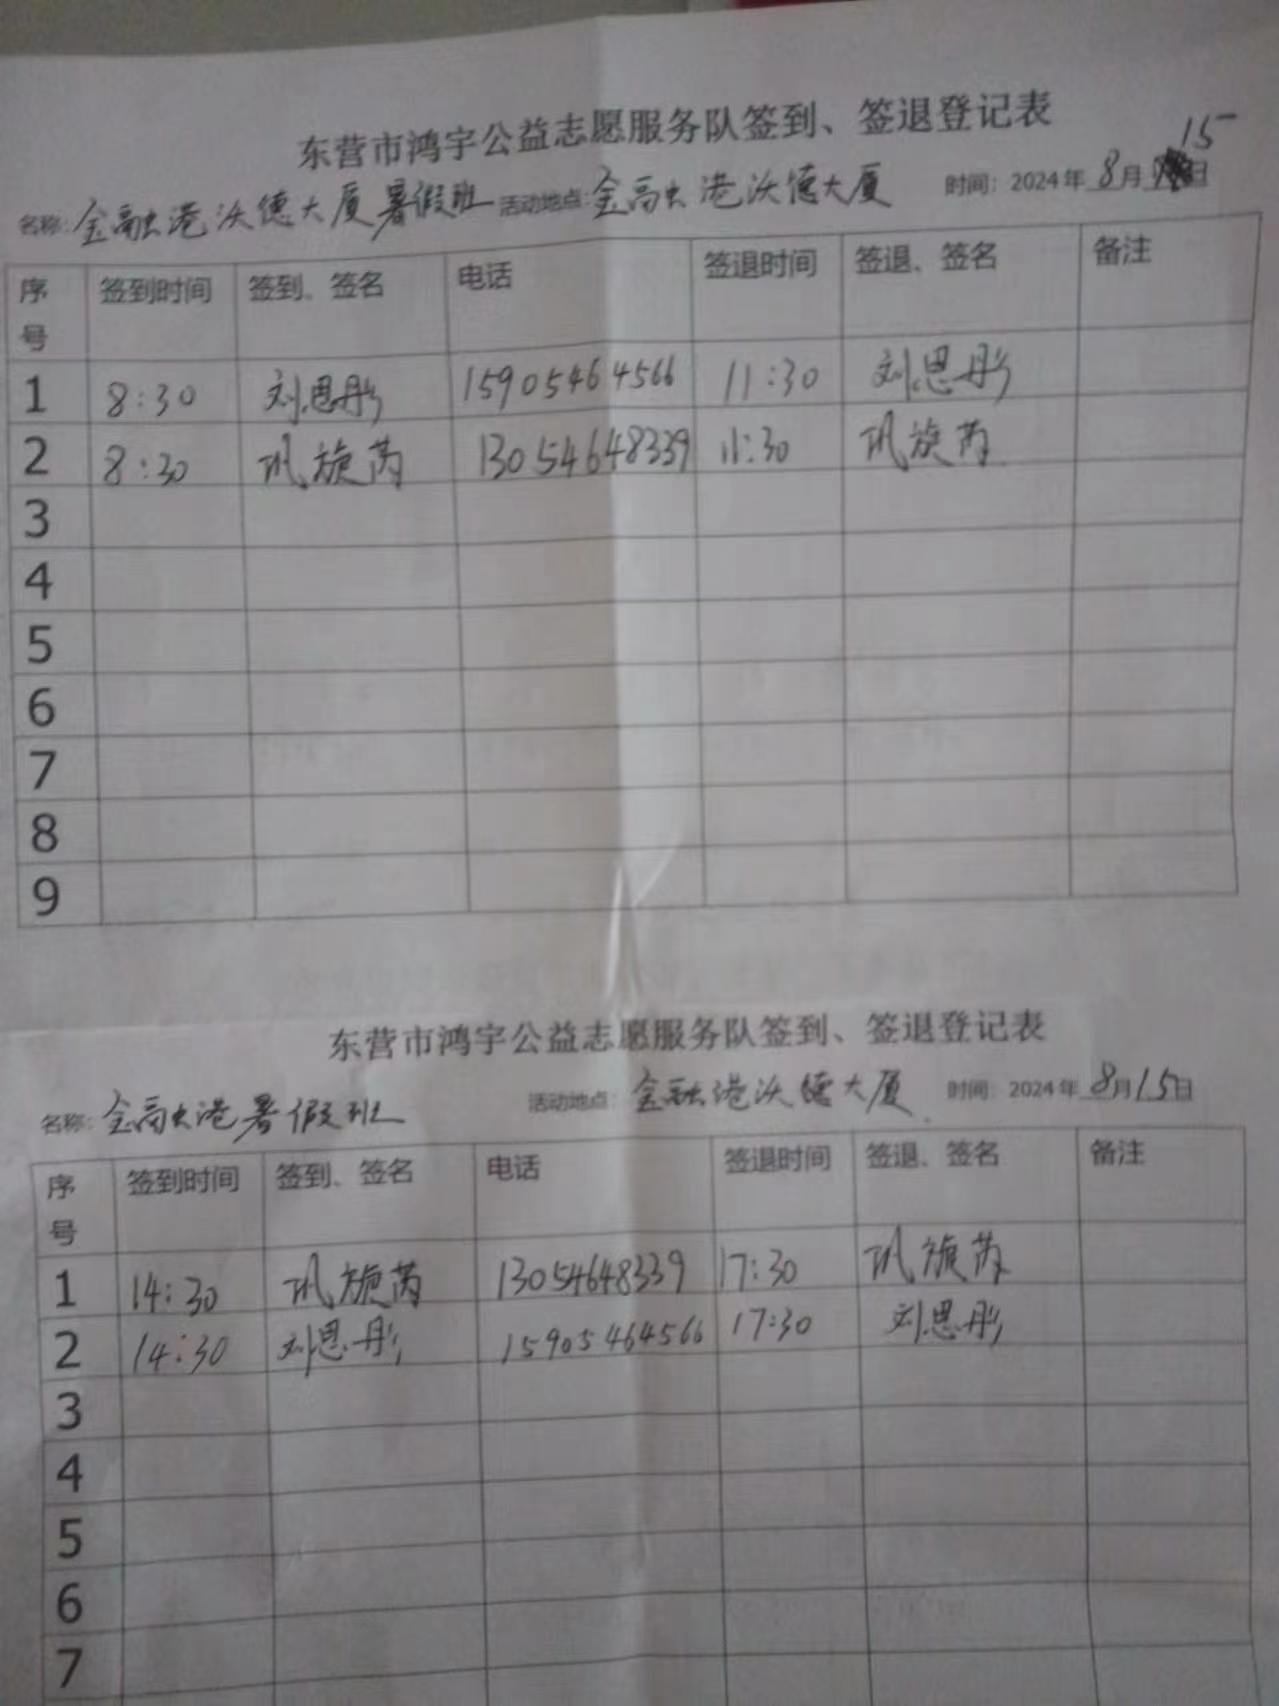 东营市鸿宇公益志愿服务队签到、签退登记表
名称：金融港沃德大厦暑假班 活动地点：金融港沃德大厦 时间：2024年8月15日
序号 签到时间 签到、签名 电话 签退时间 签退、签名 备注
1 8:30 刘思彤 15905464566 11:30 刘思彤
2 8:30 巩旋芮 13054648339 11:30 巩旋芮
3
4
5
6
7
8
9
东营市鸿宇公益志愿服务队签到、签退登记表
名称：金融港暑假班 活动地点：金融港沃德大厦 时间：2024年8月15日
序号 签到时间 签到、签名 电话 签退时间 签退、签名 备注
1 14:30 巩旋芮 13054648339 17:30 巩旋芮
2 14:30 刘思彤 15905464566 17:30 刘思彤
3
4
5
6
7